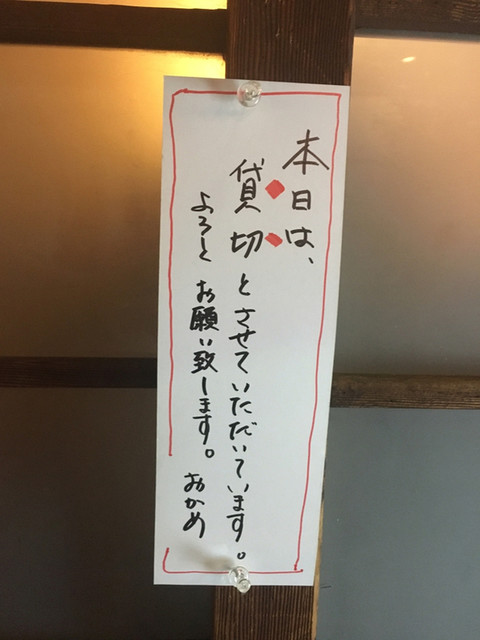 本日は、
貸切とさせていただいています。
よろしくお願い致します。 おかめ